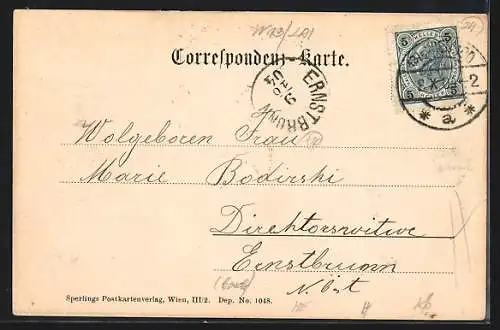 Correspondenz-Karte.
5 HELLER 5
5 5
ERNSTBRUNN
9
04
* a *
Wolgeboren Frau
Marie Bodirski
Direktorswitwe
Ernstbrunn
N. Öst
Sperlings Postkartenverlag, Wien, III/2. Dep. No. 1048.